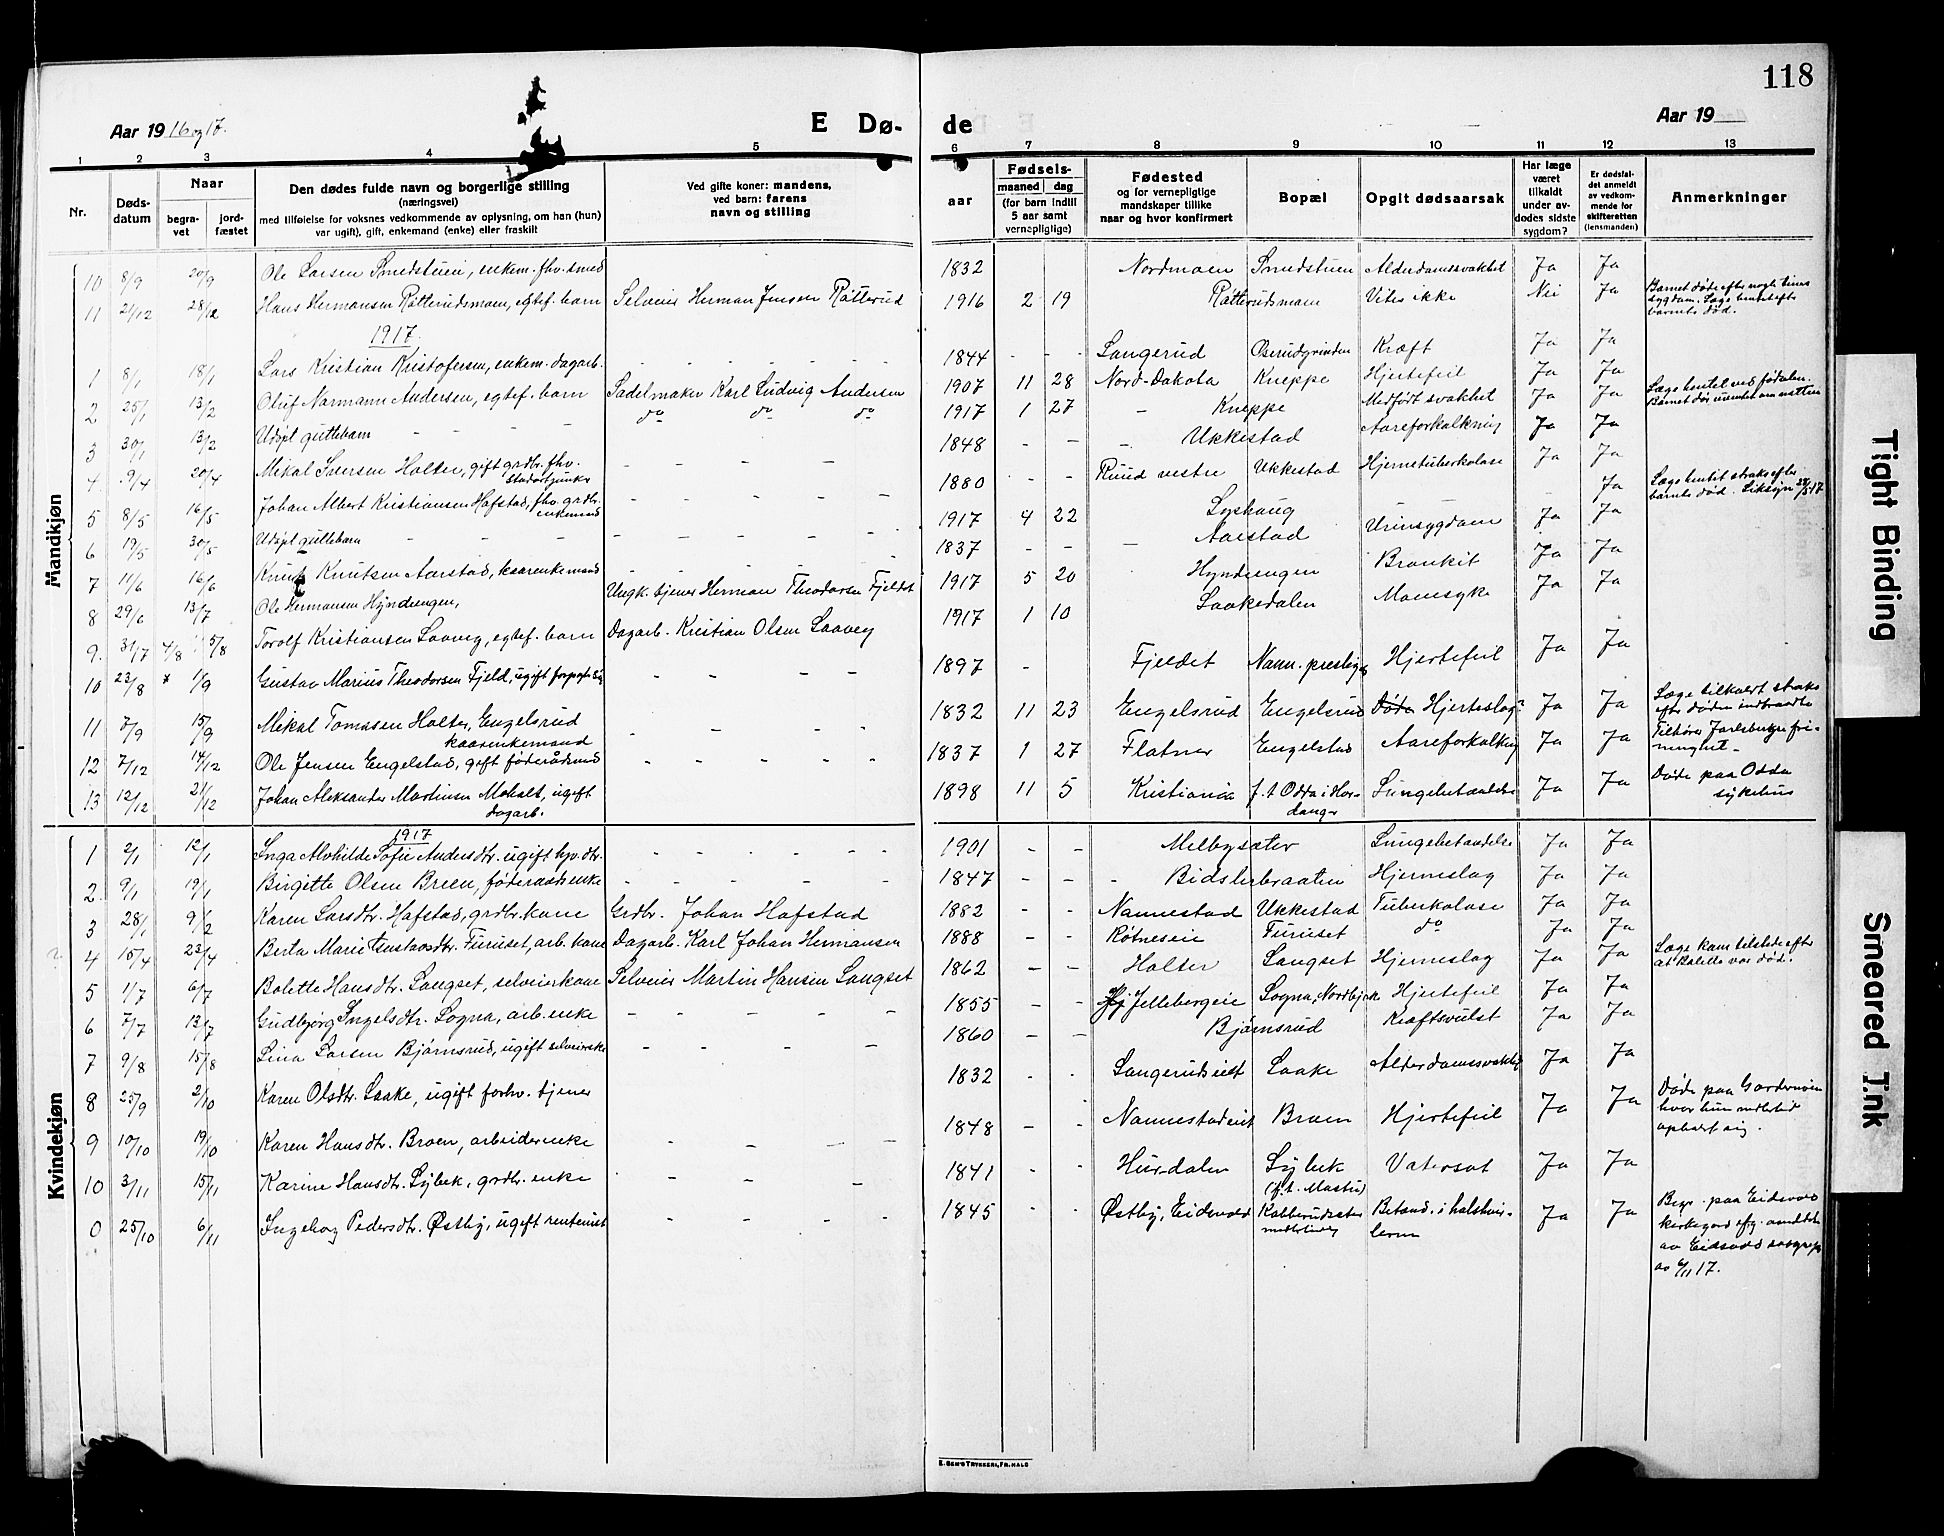 118
Aar 1916 og 17.
E Dø-
de
Aar 19
1 2 3 4 5 6 7 8 9 10 11 12 13
Nr.
Døds-
datum
Naar
begra-
vet
jord-
fæstet
Den dødes fulde navn og borgerlige stilling
(næringsvei)
med tilføielse for voksnes vedkommende av oplysning, om han (hun)
var ugift), gift, enkemand (enke) eller fraskilt
Ved gifte koner: mandens,
ved barn: farens
navn og stilling
aar
Fødsels-
maaned dag
(for barn indtil
5 aar samt
vernepligtige)
Fødested
og for vernepligtige
mandskaper tillike
naar og hvor konfirmert
Bopæl
Opgit dødsaarsak
Har læge
været
tilkaldt
under av-
dødes sidste
sygdom?
Er dødsfal-
det anmeldt
av vedkom-
mende for
skifteretten
(lensmanden)
Anmerkninger
Mandkjøn
10 8/9 20/9 Ole Larsen Smedstuen, enkem. fhv. smed 1832 Nordmoen Smedstuen Alderdomssvakhet Ja Ja
11 21/12 28/12 Hans Hermansen Råtterudsmoen, egtef. barn Selveier Herman Jensen Råtterud 1916 2 19 Råtterudsmoen Vites ikke Nei Ja Barnet døde efter nogle timers
sygdom. Læge hentet efter
barnets død.
1917
1 8/1 18/1 Lars Kristian Kristofersen, enkem. dagarb. - - - - - 1844 - - - Langerud Oserudgrinden Kræft Ja Ja
2 25/1 13/2 Oluf Normann Andersen, egtef. barn Sadelmaker Karl Ludvig Andersen 1907 11 28 Nord-Dakota Kneppe Hjertefeil Ja Ja
3 30/1 13/2 Udøpt guttebarn - - - - do do do 1917 1 27 - Kneppe Medfødt svakhet Ja Ja Læge hentet ved fødselen.
Barnet døde uventet om natten
4 9/4 20/4 Mikal Iversen Holter, gift grdbr. fhv. - - - - 1848 - - - Ukkestad Aareforkalkning Ja Ja
5 8/5 16/5 Johan Albert Kristiansen Hafstad, fhv. grdbr.
enkemand - - - - 1880 - - Ruud vestre Ukkestad Hjernetuberkulose Ja Ja
6 19/5 30/5 Udøpt guttebarn - - - - - - - - 1917 4 22 Lyshaug - Ja Læge hentet straks efter
barnets død. Liksyn 22/5 17
7 11/6 16/6 Knut Knutsen Aarstad, kaarenkemand - - - - - 1837 - - - Aarstad Urinsygdom Ja Ja
8 29/6 13/7 Ole Hermansen Hyndengen, Ungk. tjener Herman Theodorsen Fjeldet 1917 5 20 Hyndengen Bronkit Ja Ja
9. 31/7 4/8 5/8 Torolf Kristiansen Laaveg, egtef. barn Dagarb. Kristian Olsen Laaveg 1917 1 10 Laakedalen Mavesyke Ja Ja
10 23/8 * 1/9 Gustav Marius Theodorsen Fjeld, ugift - - - - 1897 - Fjeldet Nann. prestegd Hjertefeil Ja Ja
11 7/9 15/9 Mikal Tomasen Holter, Engelsrud
kaarenkemand - - - - 1832 11 23 Engelsrud Engelsrud Døde Hjerteslag? Ja Ja Læge tilkaldt straks
efter døden indtraadte
12 7/12 14/12 Ole Jensen Engelstad, gift føderådsmd - - - - - 1837 1 27 Flatner Engelstad Aareforkalkng Ja Ja Tilhører Jarlsbergs fri-
menighet. -
13 12/12 21/12 Johan Aleksander Martinsen Moholt, ugift
dagarb. 1898 11 5 Kristiania f. t. Odda i Har-
danger Lungebetændelse Ja Ja Døde paa Odda
sykehus
Kvindekjøn
1917
1 2/1 12/1 Inga Alvhilde Sofie Andersdtr. ugift hjv. dtr. - - - - - 1901 - - Melbysæter Lungebetændelse Ja Ja
2. 9/1 19/1 Birgitte Olsen Breen, føderaadsenke - - - - - 1847 - - - Bidslerbraaten Hjerneslag Ja Ja
3 28/1 9/2 Karen Larsdtr. Hafstad, grdbr. kone Grdbr. Johan Hafstad 1882 - - Nannestad Ukkestad Tuberkulose Ja Ja
4 15/4 23/4 Berta Marie Gustavsdtr. Furuset, arb. kone Dagarb. Karl Johan Hermansen 1888 - - Røtneseie Furuset do Ja Ja
5 1/7 6/7 Bolette Hansdtr. Langset, selveierkone Selveier Martin Hansen Langset 1862 - - Holter Langset Hjerneslag Ja Ja Læge kom tilstede efter
at Bolette var død.
6 7/7 13/7 Gudbjørg Ingelsdtr. Sogna, arb. enke - - - - - 1855 - - Hjellebergeie Sogna, Nordbyeik Hjertefeil Ja Ja
7 9/8 15/8 Lina Larsen Bjørnsrud, ugift selveierske - - - - 1860 - - Bjørnsrud Kræftsvulst Ja Ja
8 25/9 2/10 Karen Olsdtr. Laake, ugift forhv. tjener 1832 - - Langerudseiet Laake Alderdomssvakhet Ja Ja
9 10/10 19/10 Karen Hansdtr. Broen, arbeiderenke - - - - 1848 - - Nannestadeiet Broen Hjertefeil Ja Ja Døde paa Gardermoen
hvor hun midlertid
opholdt sig.
10 3/11 15/11 Karine Hansdtr. Lybek, grdbr. enke - - - 1841 - - Hurdalen Lybek Vatersot Ja Ja
0 25/10 6/11 Ingeborg Pedersdtr. Østby, ugift rentenist - - - - 1845 - - Østby, Eidsvold (f. t. Mastu)
midlertidig Betænd. i halshvir-
lerne Ja Ja Begr. paa Eidsvold
kirkegård
av Eidsvold sogneprest
av 6/11 17.
E. SEM'S TRYKKERI, FR.HALD
Tight Binding
Smeared Ink